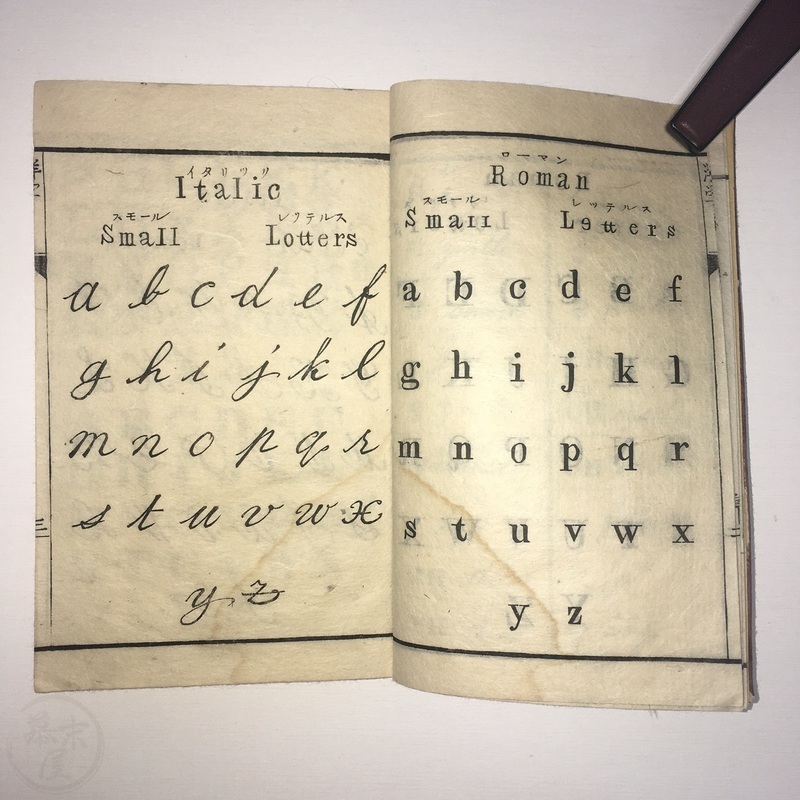 ローマン
Roman
スモール レッテルス
Small Letters
a b c d e f
g h i j k l
m n o p q r
s t u v w x
y z
イタリツリ
Italic
スモール レツテルス
Small Lotters
a b c d e f
g h i j k l
m n o p q r
s t u v w x
y z
三